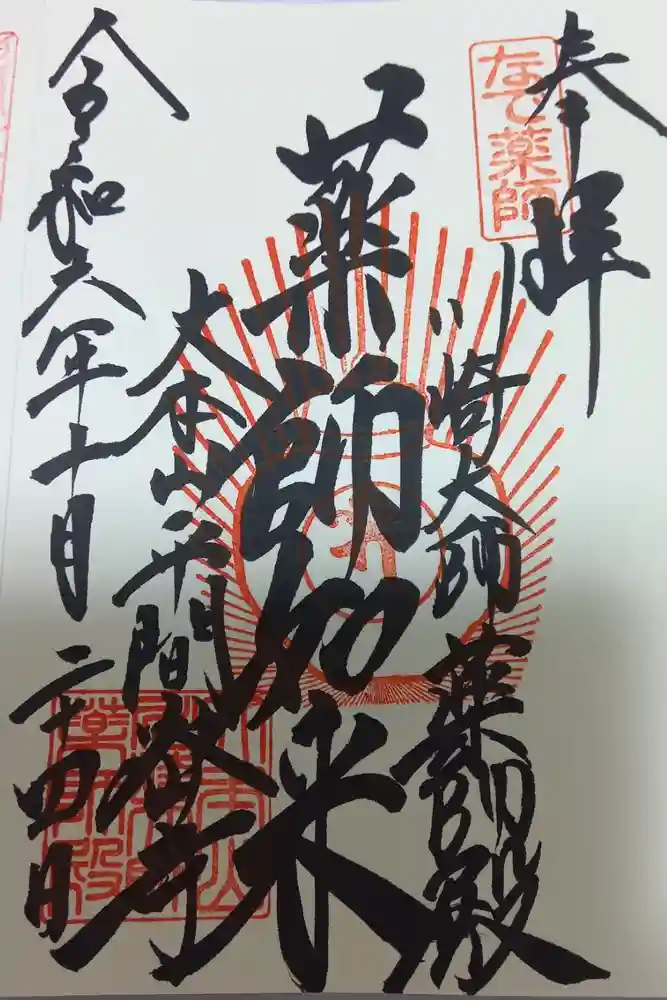 奉拝
なで薬師
川崎大師薬師殿
薬師如来
大本山平間寺
令和六年十月二十四日